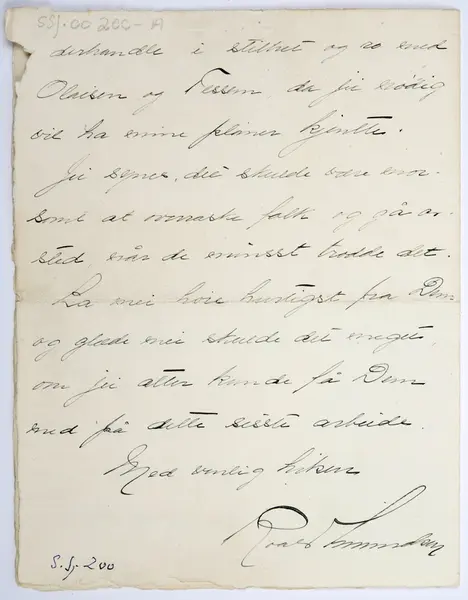 SSJ.00 200-A
derhandle i stillhet og ro med
Olaisen og Tessem da jei nødig
vil ha mine planer kjentte.
Jei synes, det skulde være mor-
somt at overraske folk og gå av-
sted, når de minsst trodde det.
La mei høre hurtigst fra Dem
og glæde mei skulde det meget,
om jei atter kunde få Dem
med på dette sisste arbeide.
Med venlig hilsen
Roald Amundsen
S.Sj. 200